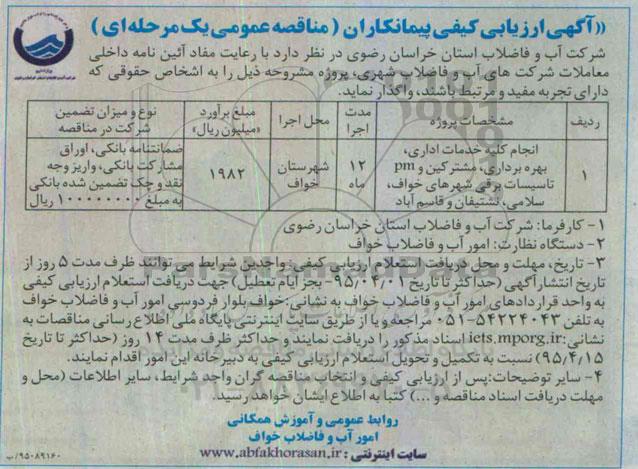 «آگهی ارزیابی کیفی پیمانکاران ( مناقصه عمومی یک مرحله ای )
شرکت آب و فاضلاب استان خراسان رضوی در نظر دارد با رعایت مفاد آئین نامه داخلی
معاملات شرکت های آب و فاضلاب شهری، پروژه مشروحه ذیل را به اشخاص حقوقی که
دارای تجربه مفید و مرتبط باشند، واگذار نماید.
ردیف
مشخصات پروژه
مدت اجرا
محل اجرا
مبلغ برآورد «میلیون ریال»
نوع و میزان تضمین شرکت در مناقصه
۱
انجام کلیه خدمات اداری،
بهره برداری، مشترکین و pm
تاسیسات برقی شهرهای خواف،
سلامی، نشتیفان و قاسم آباد
۱۲ ماه
شهرستان خواف
۱۹۸۲
ضمانتنامه بانکی، اوراق
مشارکت بانکی، واریز وجه
نقد و چک تضمین شده بانکی
به مبلغ ۱۰۰۰۰۰۰۰۰ ریال
۱- کارفرما: شرکت آب و فاضلاب استان خراسان رضوی
۲- دستگاه نظارت: امور آب و فاضلاب خواف
۳- تاریخ، مهلت و محل دریافت استعلام ارزیابی کیفی: واجدین شرایط می توانند ظرف مدت ۵ روز از
تاریخ انتشار آگهی (حداکثر تا تاریخ ۹۵/۰۴/۰۱- بجز ایام تعطیل) جهت دریافت استعلام ارزیابی کیفی
به واحد قراردادهای امور آب و فاضلاب خواف به نشانی: خواف بلوار فردوسی امور آب و فاضلاب خواف
به تلفن ۵۴۲۲۴۰۴۳-۰۵۱ مراجعه و یا از طریق سایت اینترنتی پایگاه ملی اطلاع رسانی مناقصات به
نشانی: iets.mporg.ir اسناد مذکور را دریافت نمایند و حداکثر ظرف مدت ۱۴ روز (حداکثر تا تاریخ
۹۵/۴/۱۵) نسبت به تکمیل و تحویل استعلام ارزیابی کیفی به دبیرخانه این امور اقدام نمایند.
۴- سایر توضیحات: پس از ارزیابی کیفی و انتخاب مناقصه گران واجد شرایط، سایر اطلاعات (محل و
مهلت دریافت اسناد مناقصه و ...) کتبا به اطلاع ایشان خواهد رسید.
روابط عمومی و آموزش همگانی
امور آب و فاضلاب خواف
سایت اینترنتی: www.abfakhorasan.ir
۹۵۰۸۹۱۶۰/ب